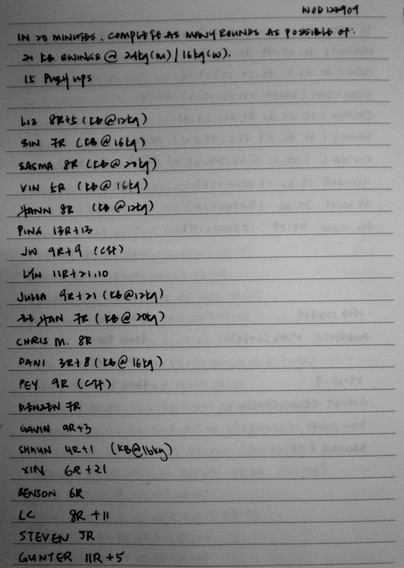 WOD 122909
IN 20 MINUTES, COMPLETE AS MANY ROUNDS AS POSSIBLE OF:
21 KB SWINGS @ 24kg(m) / 16kg(w).
15 Push ups
LIZ 8R+5 (KB@12kg)
SIN 7R (KB@16kg)
SASMA 8R (KB@20kg)
VIN 5R (KB@16kg)
HANN 8R (KB@12kg)
PING 13R+13
JW 9R+9 (CH)
LYN 11R+21,10
JULIA 9R+21 (KB@12kg)
HAN 7R (KB@20kg)
CHRIS M. 8R
DANI 3R+8 (KB@16kg)
PEY 9R (CH)
DENZEN 7R
GAVIN 9R+3
SHAUN 4R+1 (KB@16kg)
XIN 6R+21
BENSON 6R
LC 8R+11
STEVEN
GUNTER 11R+5